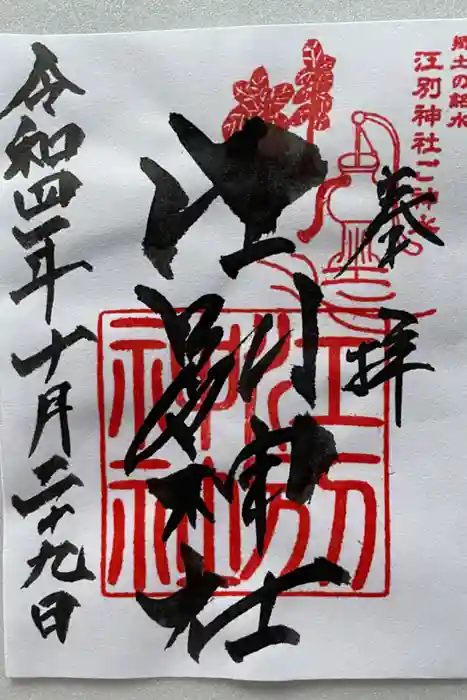 郷土の銘水
江別神社ご神水
奉拝
江別神社
江別神社
令和四年十月二十九日